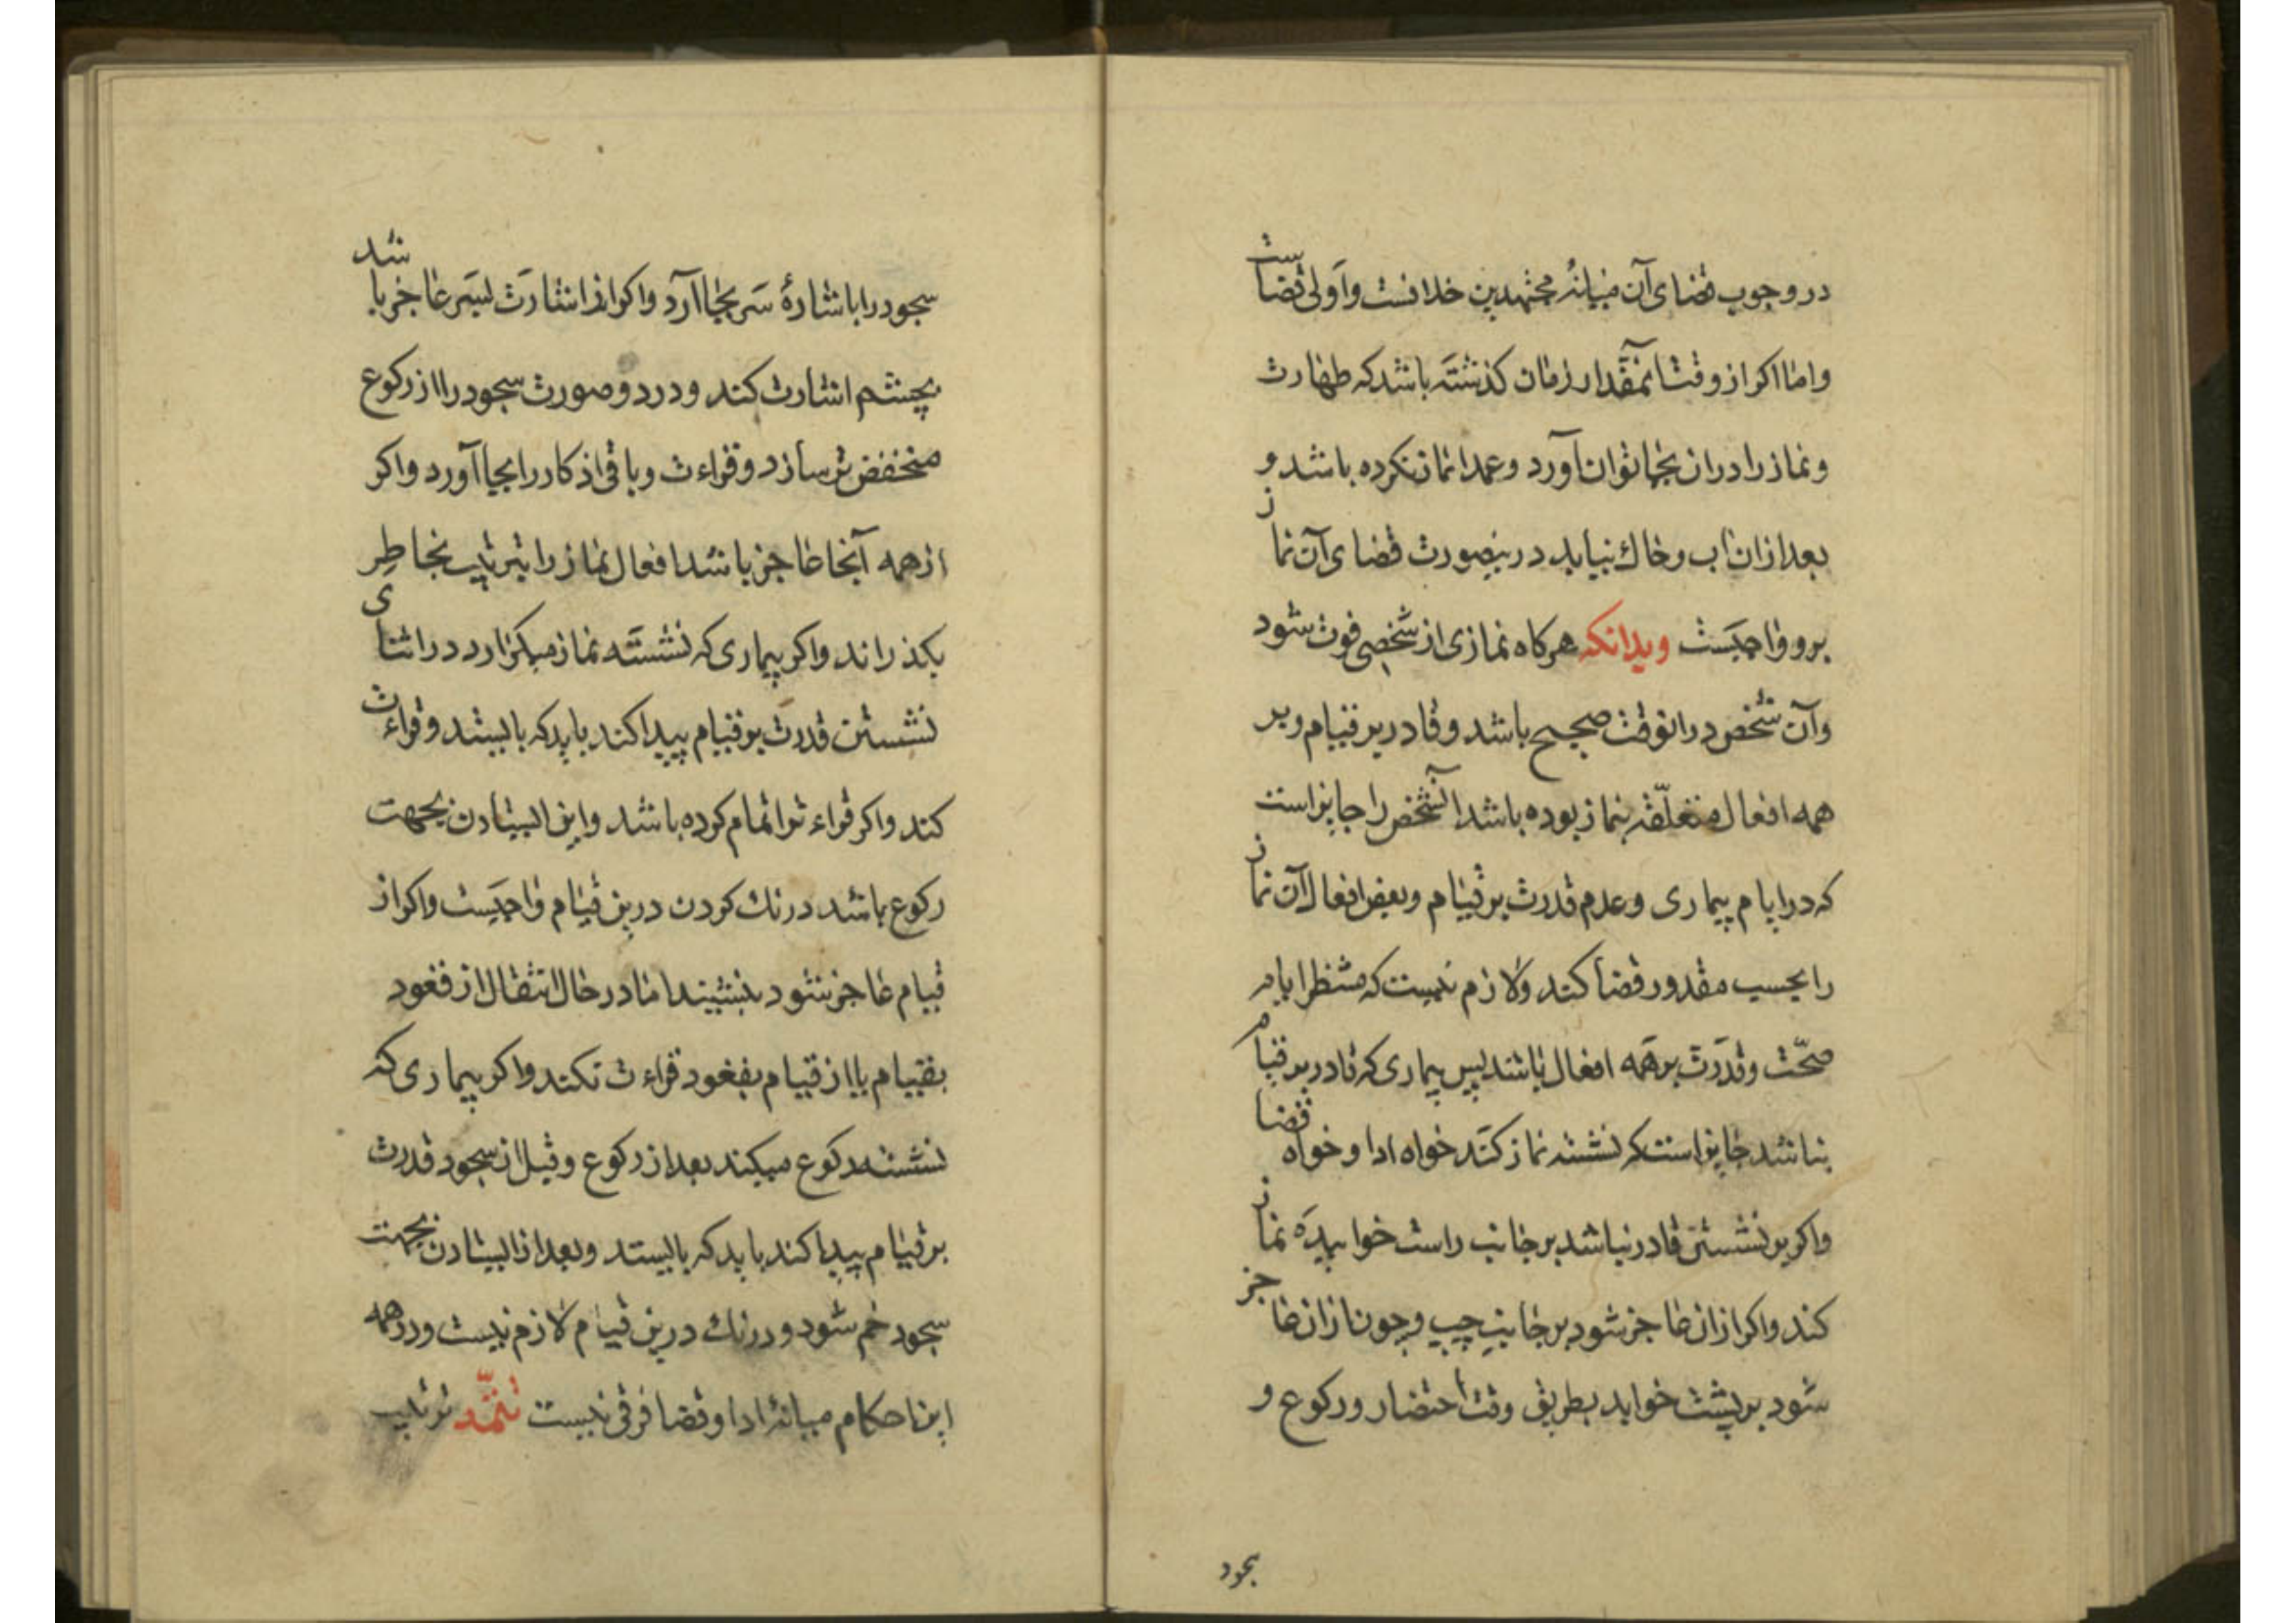 در وجوب قضای آن میانهٔ مجتهدین خلافست و اولی قضاست
و اما اکر از وقت آنمقدار زمان کذشته باشد که طهارت
و نماز را در ان بجا توان آورد و عمدا نماز نکرده باشد و
بعد از ان اب و خاك نیابد درینصورت قضای آن نماز
برو واجبست وبدانکه هرکاه نمازی از شخصی فوت شود
وآن شخص در انوقت صحیح باشد و قادر بر قیام و بر
همه افعال متعلّقه بنماز بوده باشد آنشخص را جایز است
که در ایام بیماری و عدم قدرت بر قیام و بعض افعال آن نماز
را بحسب مقدور قضا کند ولازم نیست که منتظر ایام
صحّت و قدرت بر همه افعال باشد پس بیماری که قادر بر قیام
نباشد جایز است که نشسته نماز کند خواه ادا و خواه قضا
واکر بر نشستن قادر نباشد بر جانب راست خوابیده نماز
کند واکر ازان عاجز شود بر جانب چپ و چون ازان عاجز
شود بر پشت خوابد بطریق وقت احتضار و رکوع و
سجود
سجود را باشارهٔ سر بجا آرد واکر از اشارت بسر عاجز باشد
بچشم اشارت کند و در دو صورت سجود را از رکوع
منخفض تر سازد و قراءت و باقی اذکار را بجا آورد واکر
از همه آنها عاجز باشد افعال نماز را بترتیب بخاطر
بکذراند واکر بیماری که نشسته نماز میکزارد در اثنای
نشستن قدرت بر قیام پیدا کند باید که بایستد و قراءت
کند واکر قراءت را تمام کرده باشد و این ایستادن بجهت
رکوع باشد درنك کردن درین قیام واجبست واکر از
قیام عاجز شود بنشیند اما در حال انتقال از قعود
بقیام یا از قیام بقعود قراءت نکند واکر بیماری که
نشسته رکوع میکند بعد از رکوع و قبل از سجود قدرت
بر قیام پیدا کند باید که بایستد و بعد از ایستادن بجهت
سجود خم شود و درنك درین قیام لازم نیست و در همه
این احکام میانهٔ ادا و قضا فرقی نیست تتمّه ترتیب